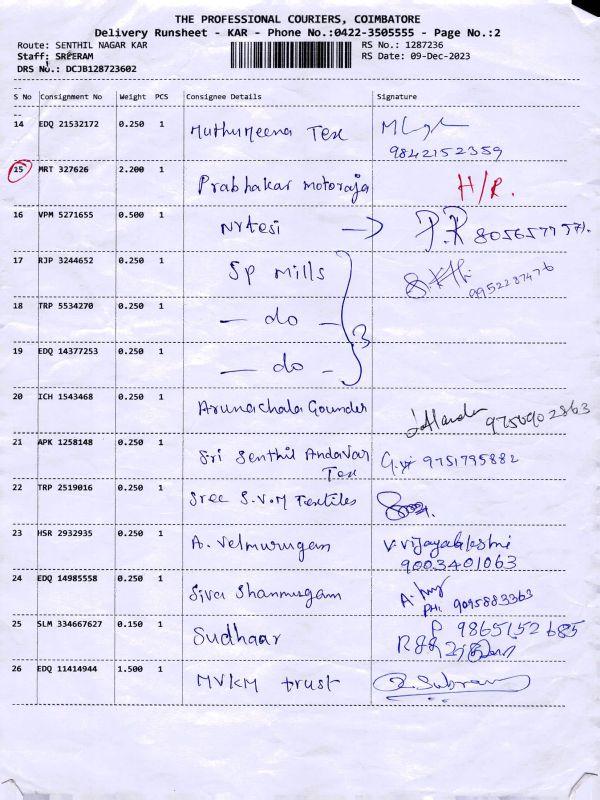 THE PROFESSIONAL COURIERS, COIMBATORE
Delivery Runsheet - KAR - Phone No.:0422-3505555 - Page No.:2
Route: SENTHIL NAGAR KAR RS No.: 1287236
Staff: SREERAM RS Date: 09-Dec-2023
DRS No.: DCJB128723602
S No Consignment No Weight PCS Consignee Details Signature
14 EDQ 21532172 0.250 1 Muthumeena Tex
9842152359
15 MRT 327626 2.200 1 Prabhakar motoraja H/R.
16 VPM 5271655 0.500 1 Nrtesi P.R 8056577571.
17 RJP 3244652 0.250 1 Sp mills
9952287476
18 TRP 5534270 0.250 1 — do — 3
19 EDQ 14377253 0.250 1 — do —
20 ICH 1543468 0.250 1 Arunachala Gounder 9750902863
21 APK 1258148 0.250 1 Sri Senthil Andavar Tex 9751795882
22 TRP 2519016 0.250 1 Sree S.V.M Textiles
23 HSR 2932935 0.250 1 A. Velmurugan V. Vijayalakshmi
9003401063
24 EDQ 14985558 0.250 1 Siva Shanmugam
PH: 9095883363
25 SLM 334667627 0.150 1 Sudhaar P 9865152685
26 EDQ 11414944 1.500 1 MVKM trust